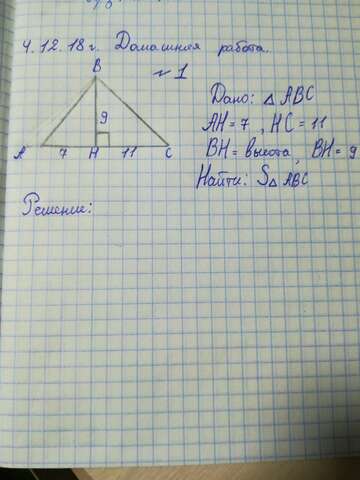 4.12.18 г. Домашняя работа.
№1
B
9
A 7 H 11 C
Дано: △ ABC
AH = 7 , HC = 11
BH = высота, BH = 9
Найти: S△ ABC
Решение: